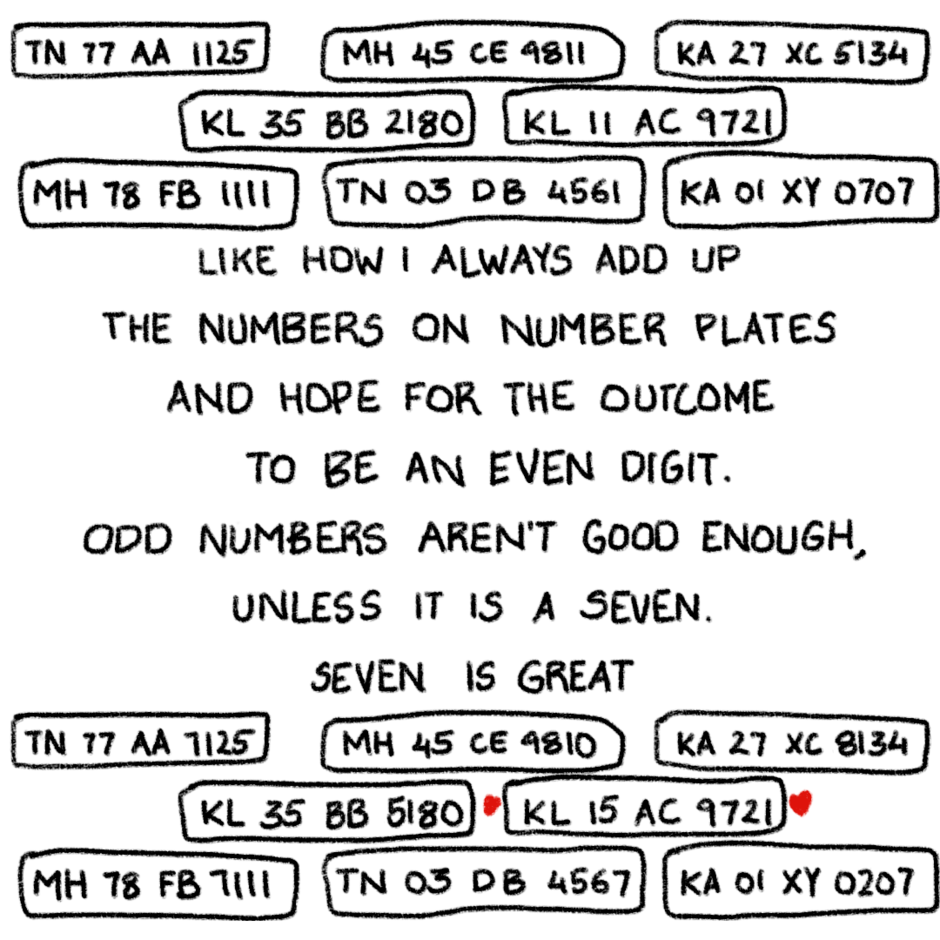 TN 77 AA 1125 MH 45 CE 9811 KA 27 XC 5134
KL 35 BB 2180 KL 11 AC 9721
MH 78 FB 1111 TN 03 DB 4561 KA 01 XY 0707
LIKE HOW I ALWAYS ADD UP
THE NUMBERS ON NUMBER PLATES
AND HOPE FOR THE OUTCOME
TO BE AN EVEN DIGIT.
ODD NUMBERS AREN'T GOOD ENOUGH,
UNLESS IT IS A SEVEN.
SEVEN IS GREAT
TN 77 AA 7125 MH 45 CE 9810 KA 27 XC 8134
KL 35 BB 5180 KL 15 AC 9721
MH 78 FB 7111 TN 03 DB 4567 KA 01 XY 0207